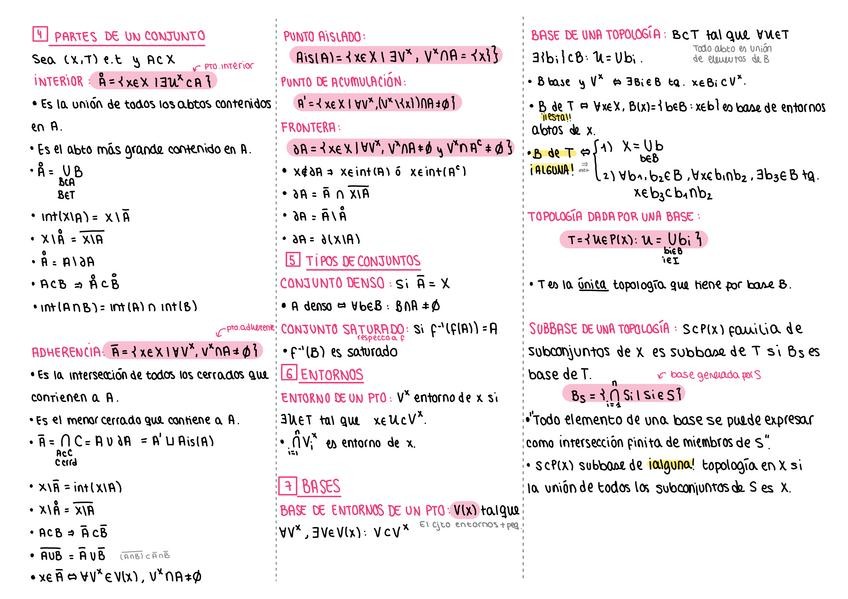 4 PARTES DE UN CONJUNTO
Sea (X,T) e.t y A⊂X
pto. interior
INTERIOR: Å={x∈X | ∃U^x⊂A}
• Es la unión de todos los abtos contenidos
en A.
• Es el abto más grande contenido en A.
• Å = ∪ B
B⊂A
B∈T
• int(X\A) = X\Ā
• X\Å = \overline{X\A}
• Å = A\∂A
• A⊂B ⇒ Å⊂B̊
• int(A∩B)=int(A)∩int(B)
pto. adherente
ADHERENCIA: Ā={x∈X | ∀V^x, V^x∩A≠∅}
• Es la intersección de todos los cerrados que
contienen a A.
• Es el menor cerrado que contiene a A.
• Ā = ∩ C = A∪∂A = A'⊔Ais(A)
A⊂C
C errd
• X\Ā = int(X\A)
• X\Å = \overline{X\A}
• A⊂B ⇒ Ā⊂B̄
• \overline{A∪B} = Ā∪B̄ \overline{(A∩B)}⊂Ā∩B̄
• x∈Ā ⇔ ∀V^x∈V(x), V^x∩A≠∅
PUNTO AISLADO:
Ais(A)={x∈X | ∃V^x, V^x∩A={x}}
PUNTO DE ACUMULACIÓN:
A'={x∈X | ∀V^x,(V^x\{x})∩A≠∅}
FRONTERA:
∂A={x∈X | ∀V^x, V^x∩A≠∅ y V^x∩A^c≠∅}
• x∉∂A ⇒ x∈int(A) ó x∈int(A^c)
• ∂A = Ā ∩ \overline{X\A}
• ∂A = Ā\Å
• ∂A = ∂(X\A)
5 TIPOS DE CONJUNTOS
CONJUNTO DENSO: Si Ā = X
• A denso ⇔ ∀b∈B: B∩A≠∅
CONJUNTO SATURADO: si f⁻¹(f(A))=A
respecto a f
• f⁻¹(B) es saturado
6 ENTORNOS
ENTORNO DE UN PTO: V^x entorno de x si
∃U∈T tal que x∈U⊂V^x.
• ⋂_{i=1}^{n} V_i^x es entorno de x.
7 BASES
BASE DE ENTORNOS DE UN PTO: V(x) tal que
∀V^x, ∃V∈V(x): V⊂V^x El cjto entornos + peq.
BASE DE UNA TOPOLOGÍA: B⊂T tal que ∀U∈T
∃{bi}⊂B: U=∪bi. Todo abto es unión
de elementos de B
• B base y V^x ⇔ ∃Bi∈B tq. x∈Bi⊂V^x.
• B de T ⇔ ∀x∈X, B(x)={b∈B: x∈b} es base de entornos
¡¡ESTA!!
abtos de x.
• B de T ⇔ { 1) X=∪b
b∈B
¡ALGUNA!
2) ∀b₁,b₂∈B, ∀x∈b₁∩b₂, ∃b₃∈B tq.
x∈b₃⊂b₁∩b₂
TOPOLOGÍA DADA POR UNA BASE:
T={U∈P(X): U = ∪bi}
bi∈B
i∈I
• T es la única topología que tiene por base B.
SUBBASE DE UNA TOPOLOGÍA: S⊂P(X) familia de
subconjuntos de X es subbase de T si Bs es
base de T. base generada por S
Bs = {⋂_{i=1}^{n} Si | Si∈S}
• "Todo elemento de una base se puede expresar
como intersección finita de miembros de S".
• S⊂P(X) subbase de ¡alguna! topología en X si
la unión de todos los subconjuntos de S es X.